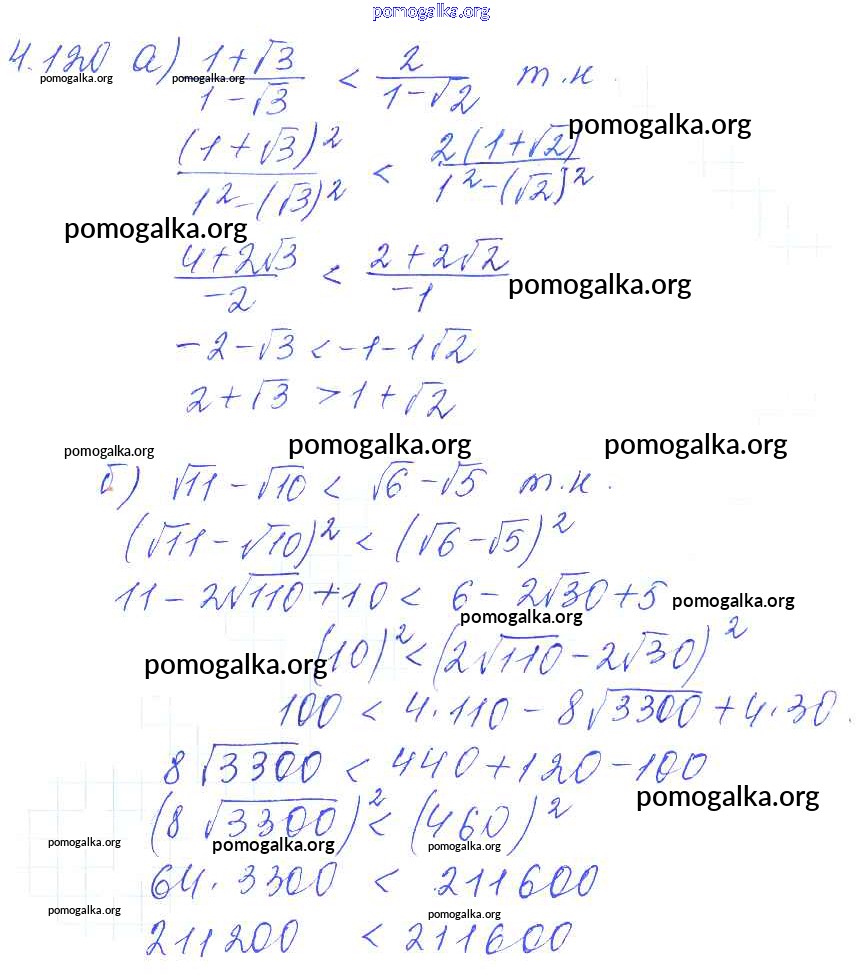 pomogalka.org
4.120 а) (1+√3)/(1-√3) < 2/(1-√2) т.к.
pomogalka.org pomogalka.org
pomogalka.org
(1+√3)²/(1²-(√3)²) < 2(1+√2)/(1²-(√2)²)
pomogalka.org
(4+2√3)/(-2) < (2+2√2)/(-1)
pomogalka.org
-2-√3 < -1-1√2
2+√3 > 1+√2
pomogalka.org pomogalka.org pomogalka.org
б) √11-√10 < √6-√5 т.к.
(√11-√10)² < (√6-√5)²
11-2√110+10 < 6-2√30+5
pomogalka.org
pomogalka.org
(10)² < (2√110-2√30)²
pomogalka.org
100 < 4·110-8√3300+4·30.
8√3300 < 440+120-100
pomogalka.org
(8√3300)² < (460)²
pomogalka.org pomogalka.org pomogalka.org
64·3300 < 211600
pomogalka.org pomogalka.org
211200 < 211600